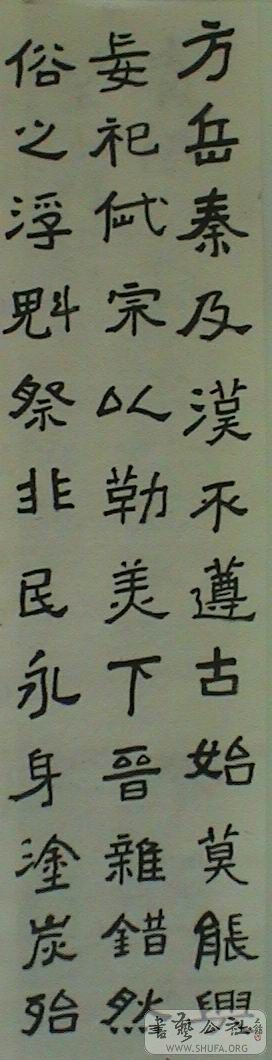 方岳秦及漢不遵古始莫能與
妄祀代宗以勒美下晉雜錯然
俗之浮魁祭非民永身塗炭殆
書藝公社
WWW.SHUFA.ORG